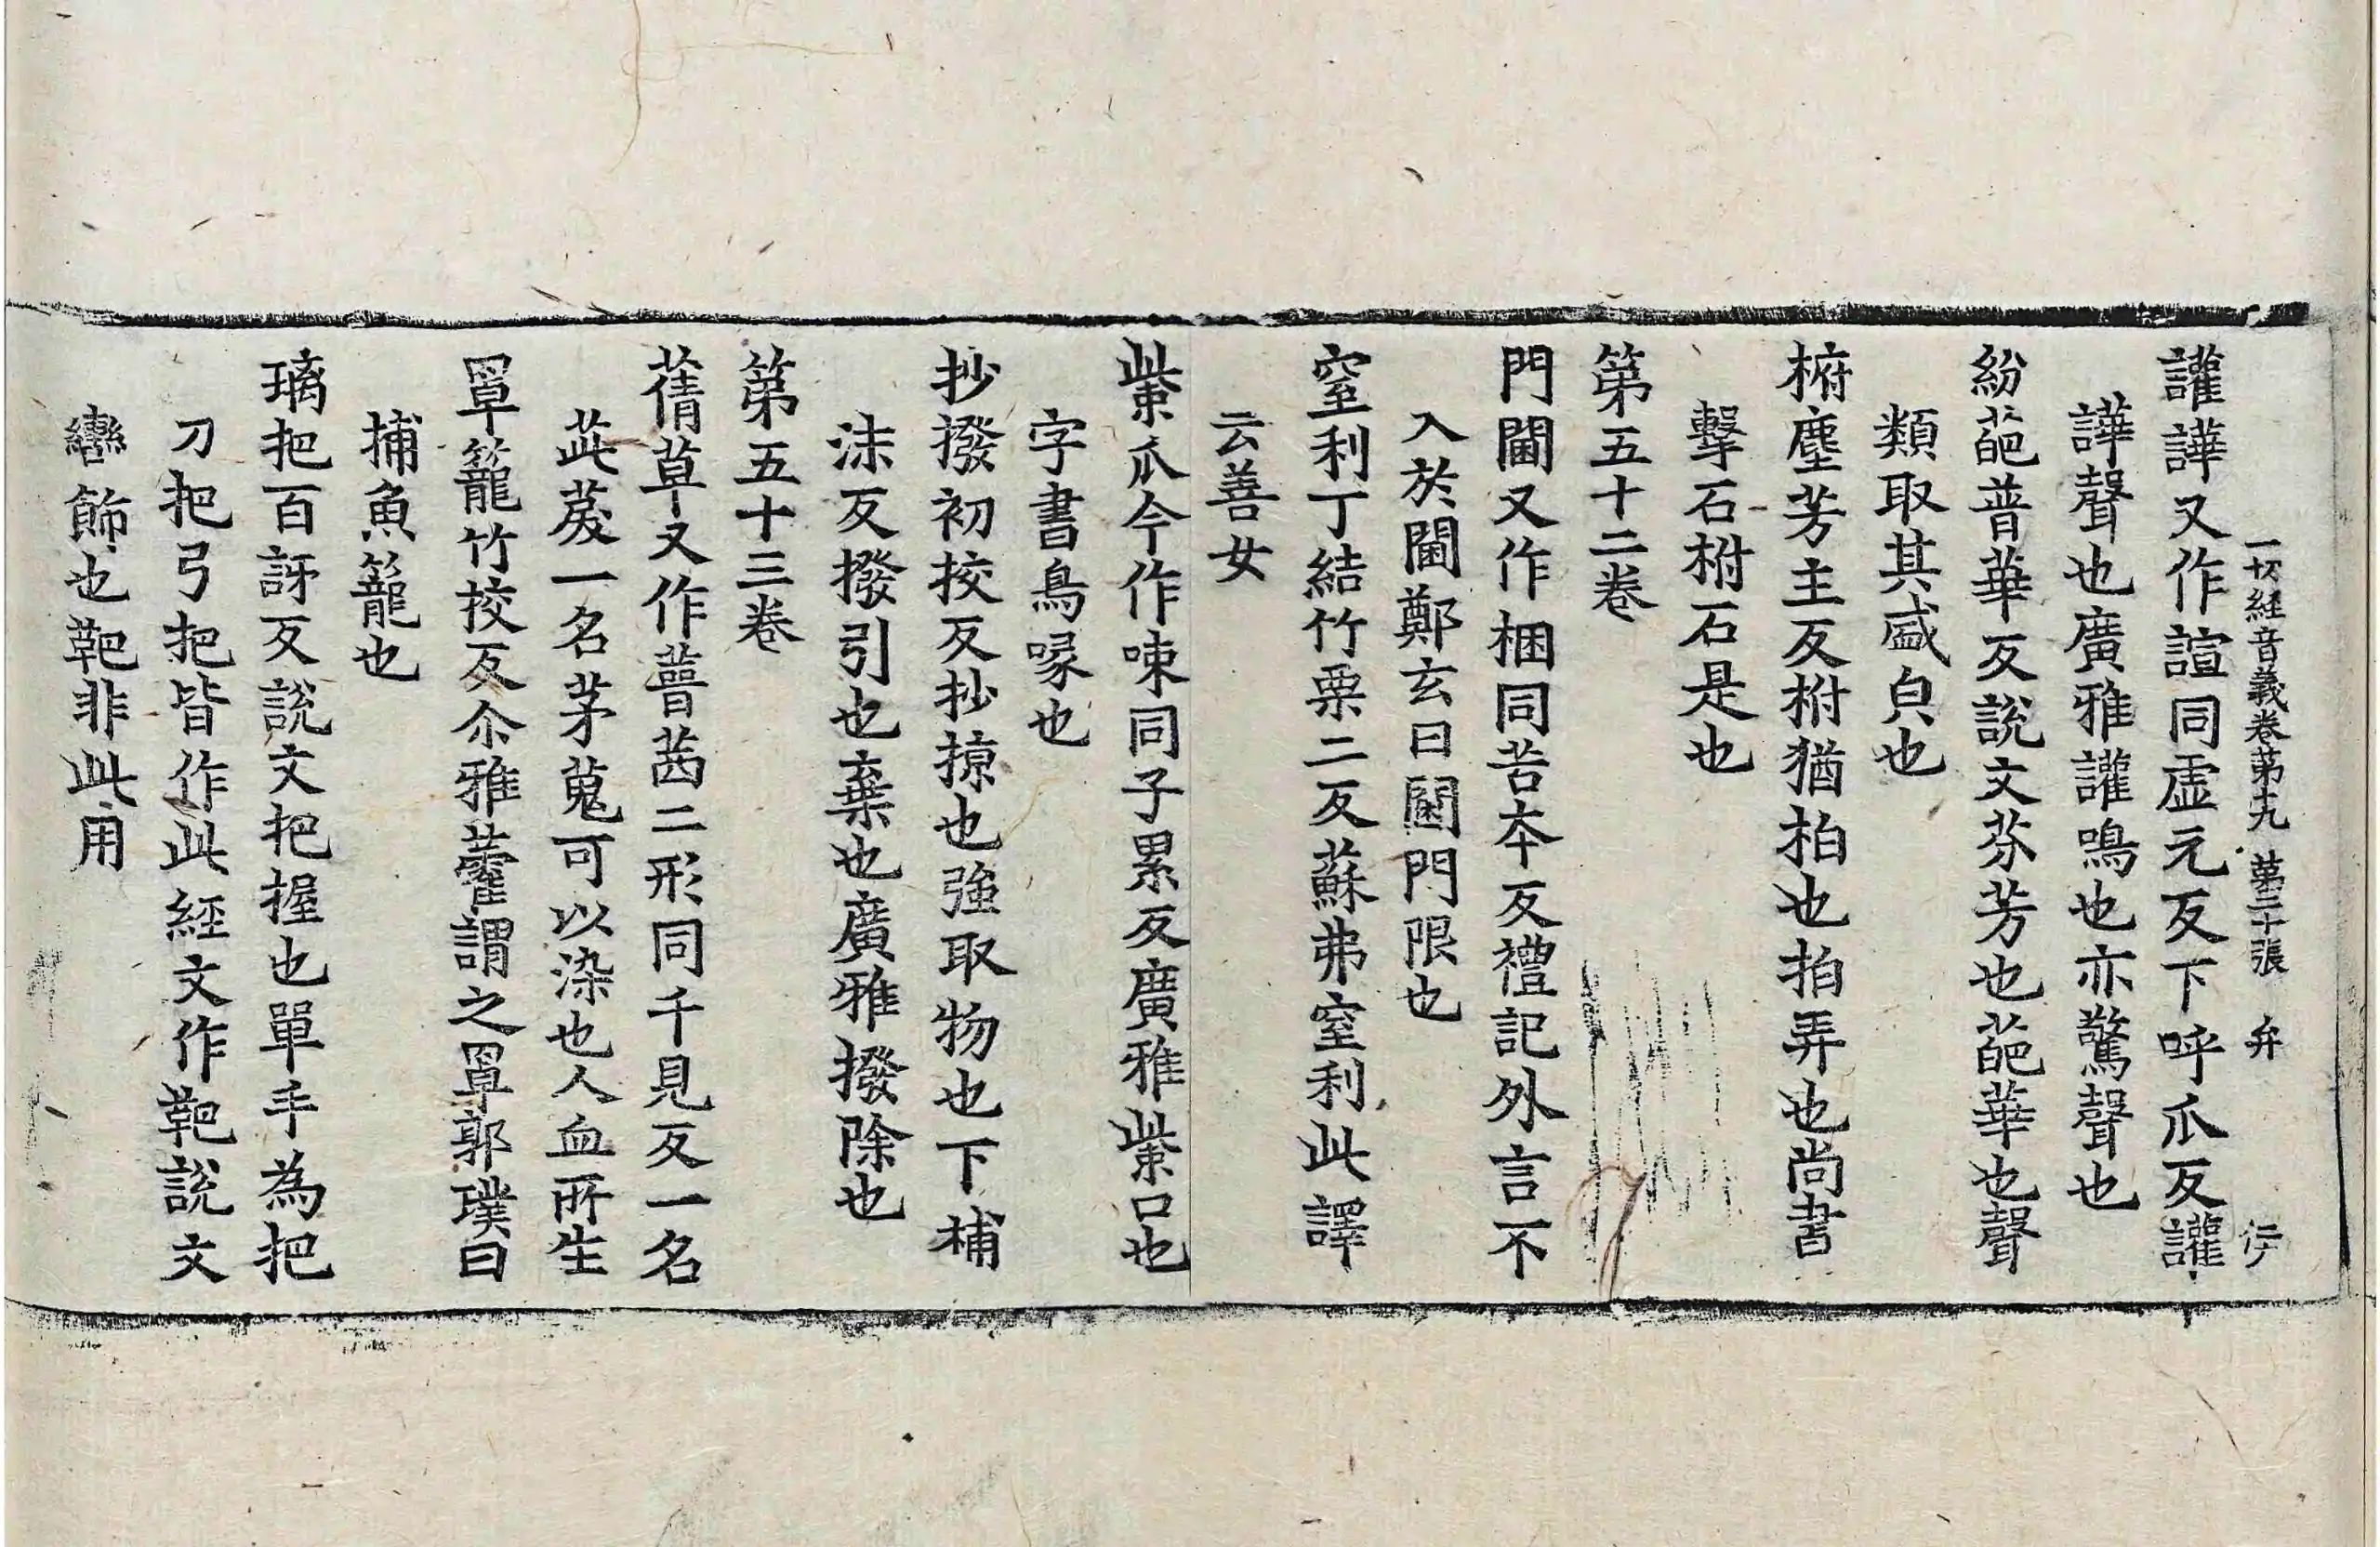 一切経音義卷第十九 第二十張 弁
讙譁又作諠同虛元反下呼爪反讙
譁聲也廣雅讙鳴也亦驚聲也
紛葩普華反說文芬芳也葩華也聲
類取其盛皃也
椨塵芳主反柎猶拍也拍弄也尚書
擊石柎石是也
第五十二卷
門閫又作梱同苦夲反禮記外言不
入於閫鄭玄曰閫門限也
窒利丁結竹栗二反蘇弗窒利此譯
云善女
㭰爪今作㖩同子累反廣雅㭰口也
字書鳥喙也
抄撥初挍反抄掠也強取物也下補
沬反撥引也棄也廣雅撥除也
第五十三卷
蒨草又作蒨茜二形同千見反一名
茈䓞一名茅蒐可以染也人血所生
罩籠竹挍反尒雅藋謂之罩郭璞曰
捕魚籠也
璃把百訝反說文把握也單手為把
刀把弓把皆作此経文作靶說文
轡飾也靶非此用